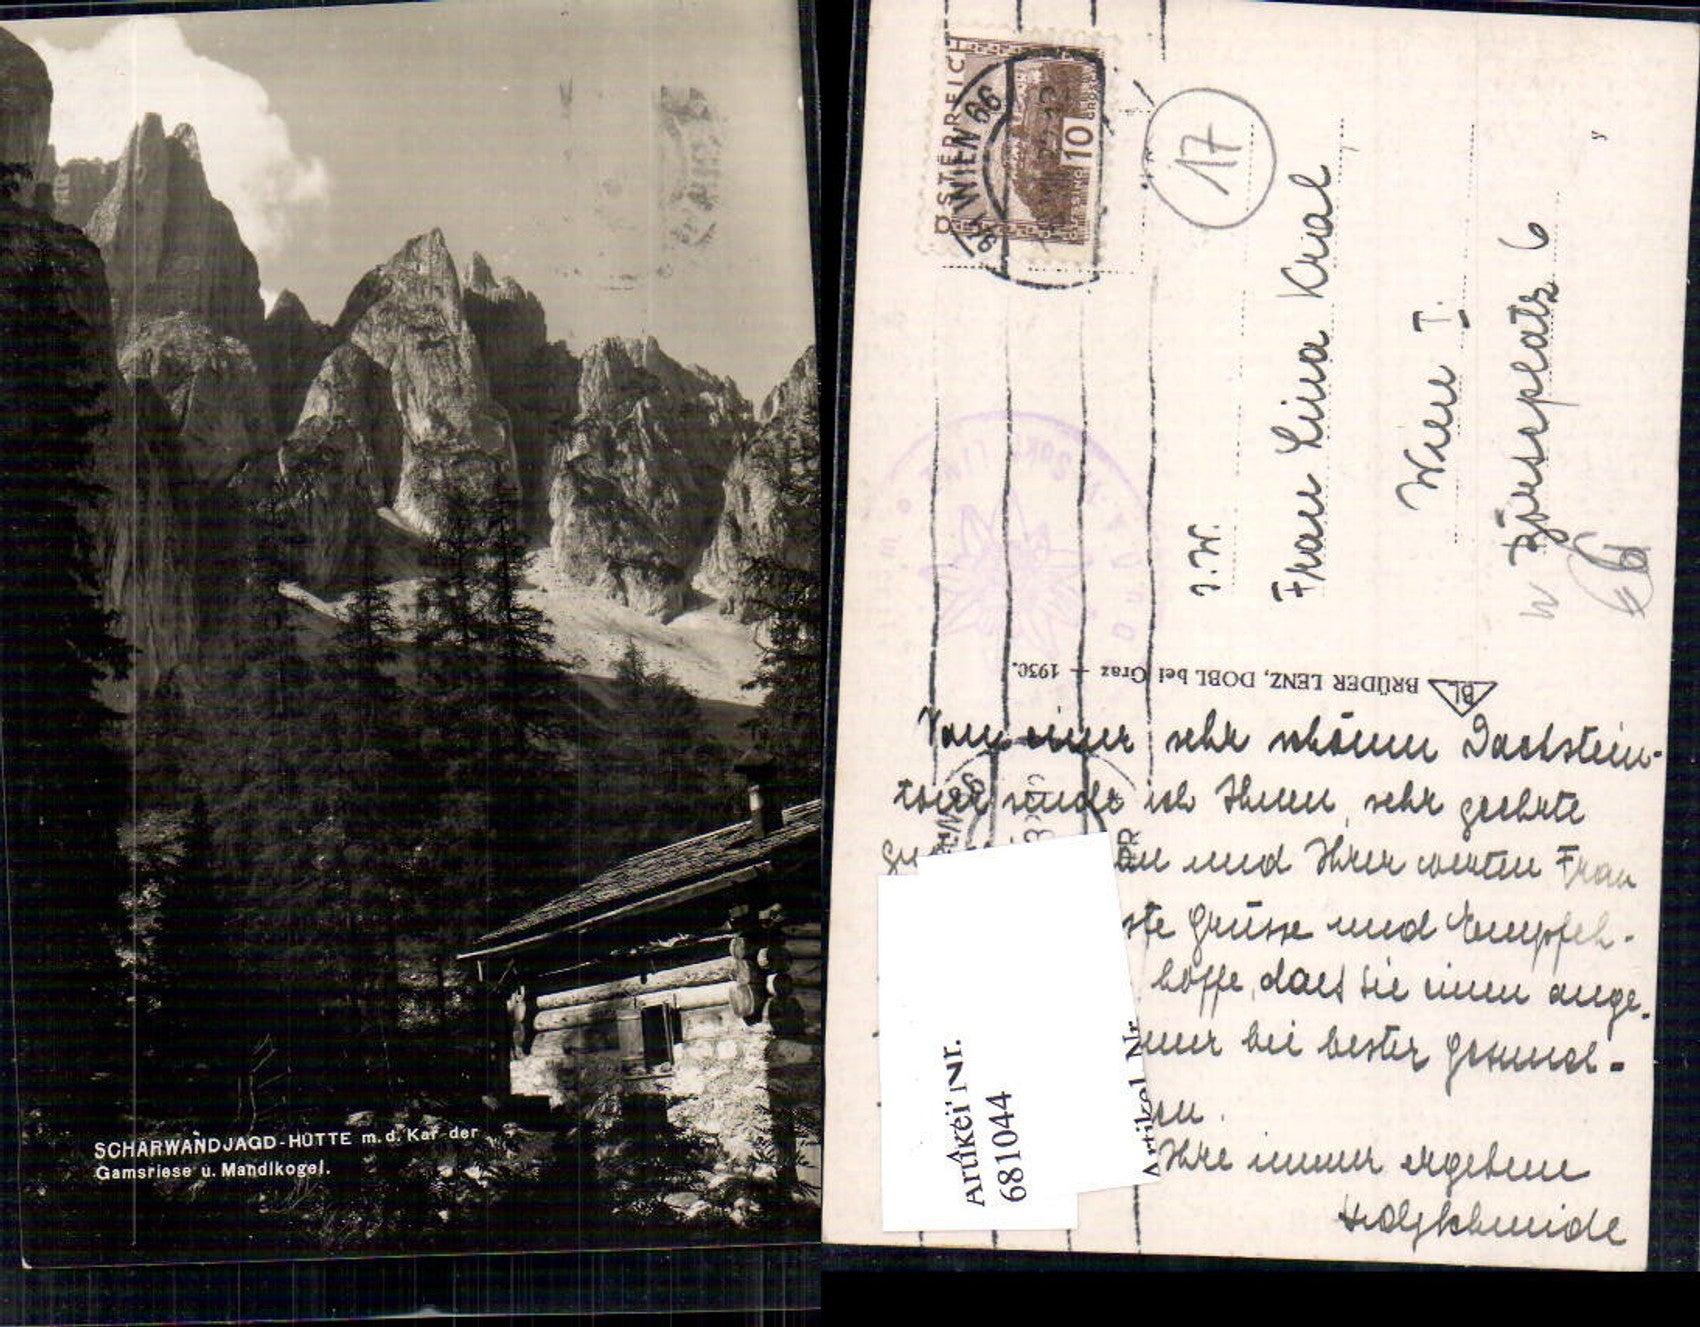 SCHARWANDJAGD-HÜTTE m.d. Kar der
Gamsriese u. Mandlkogel.
ÖSTERREICH
10
WIEN 66
17
J.W.
Frau Lina Kral
Wien I.
Börseplatz 6
y
BL BRÜDER LENZ, DOBL bei Graz + 1930.
Von einer sehr schönen Dachstein-
tour sende ich Ihnen, sehr geehrte
und Ihrer werten Frau
Grüsse und Empfeh-
hoffe, dass Sie einen ange-
bei bester Gesund-
Ihre immer ergebene
Artikel Nr.
681044
Artikel Nr.